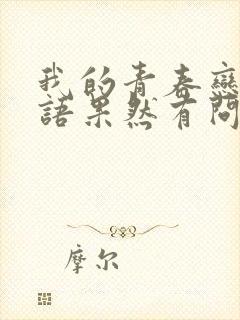 我的青春戀
語果然有問
摩尔